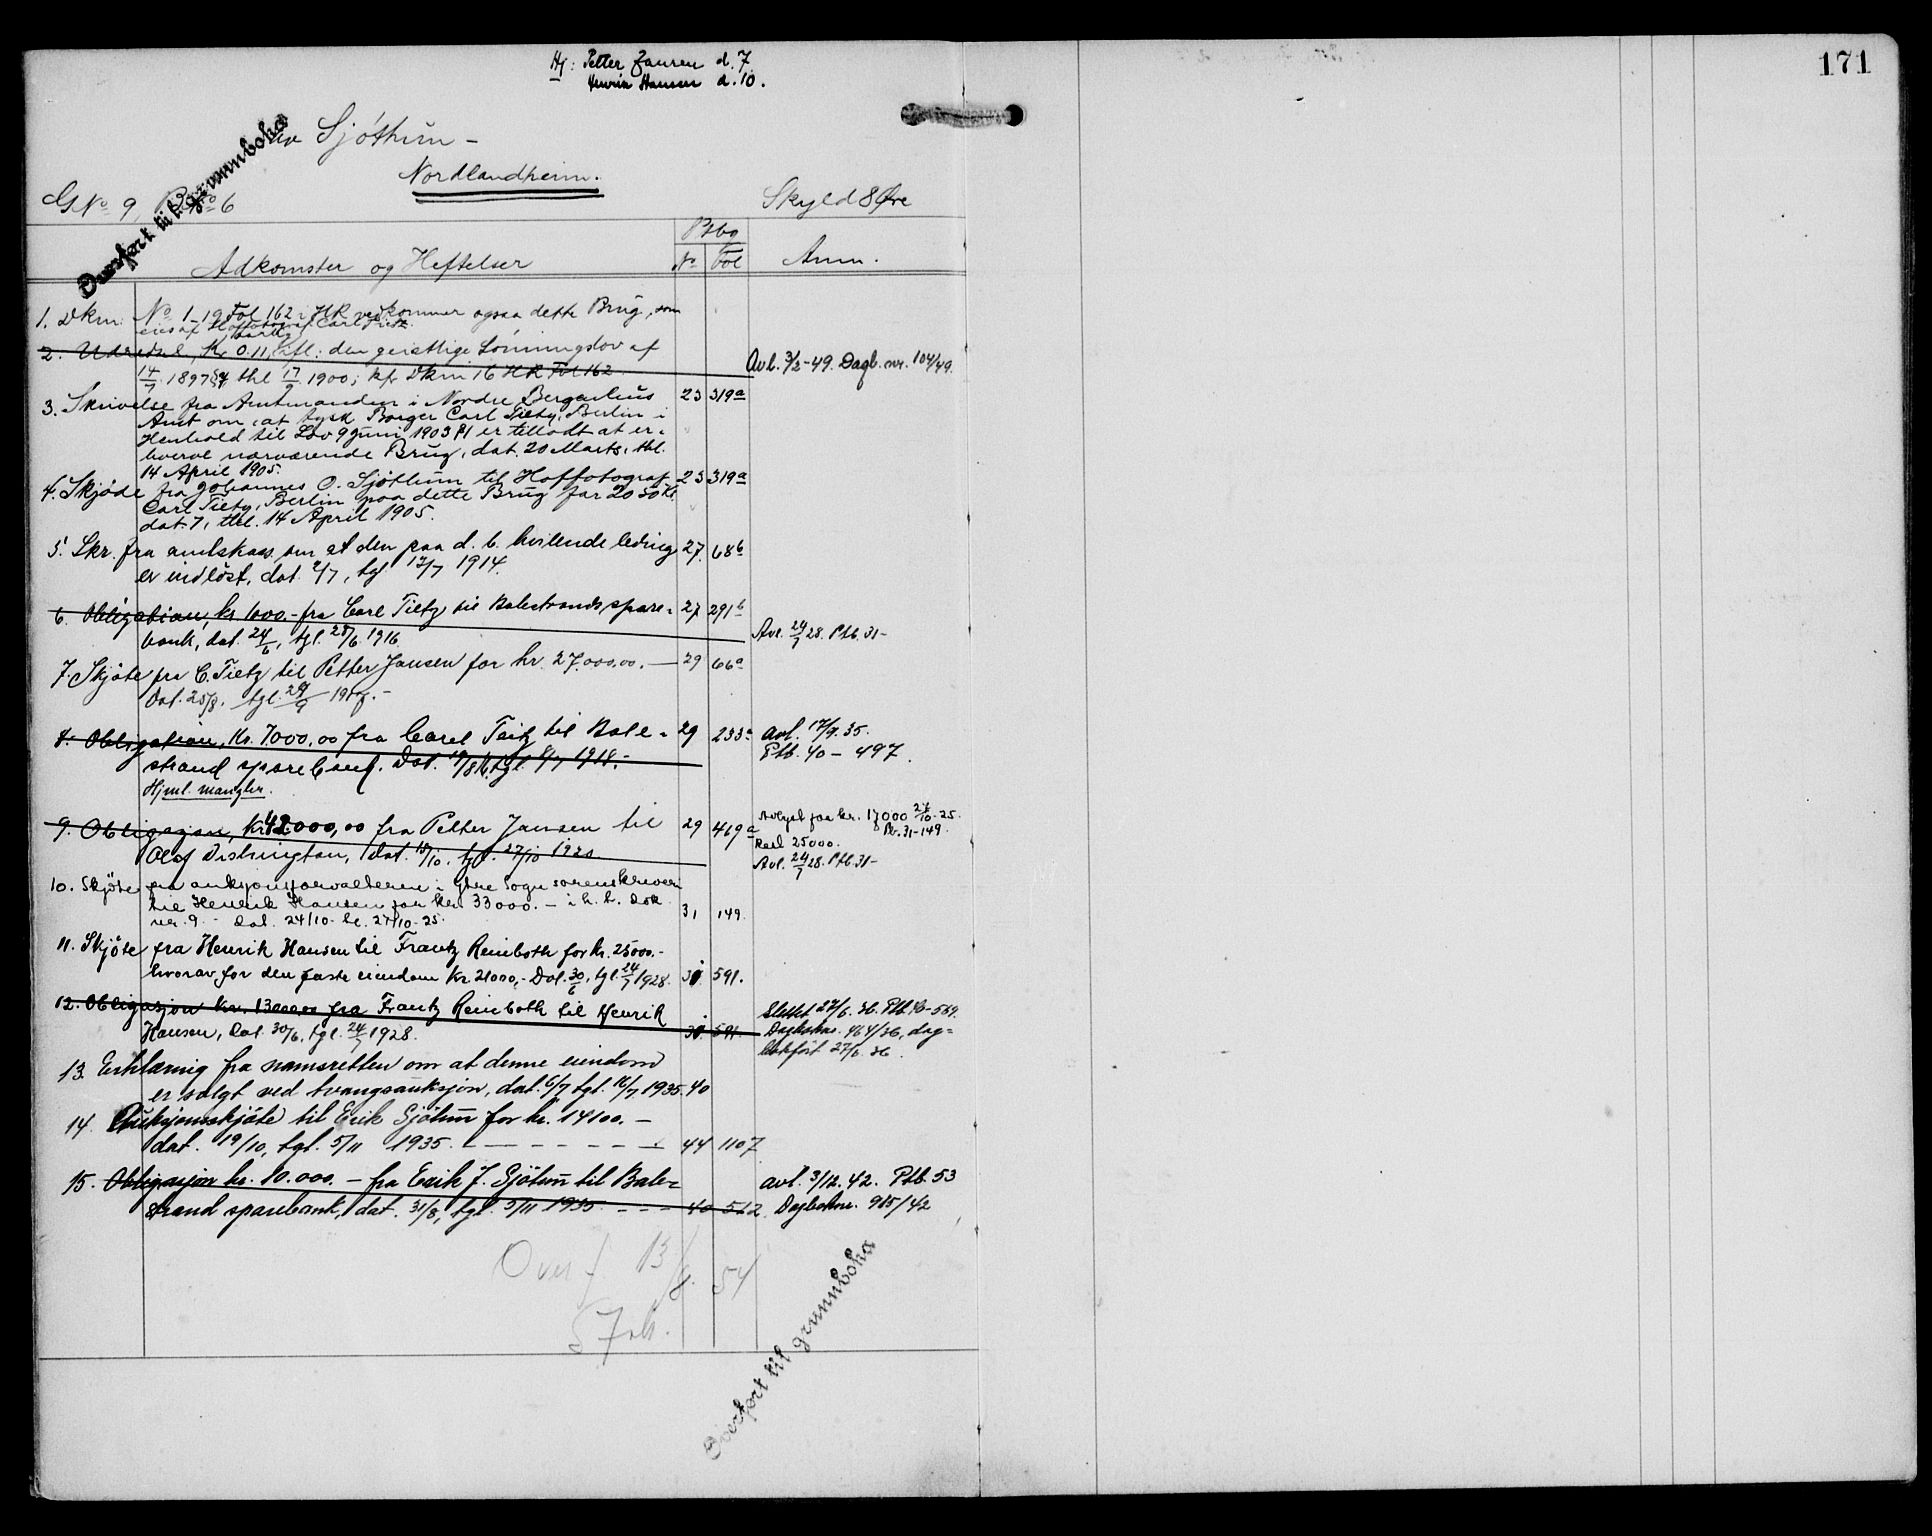 171
Hj: Petter Jansen d. 7.
Henrik Hansen d. 10.
av Sjøthun -
Nordlandheim.
GNo 9, BNo 6
Skyld 8 Øre
Overført til grunnboka
Adkomster og Heftelser
Ptbg
No Fol
Anm.
1. Dkm: No 1-19 Fol 162 i HR vedkommer ogsaa dette Brug, som
eies af Hoffotograf Carl Tietz.
2. Udredsel, Kr 0.11, aarlig, ifl. den geistlige Lønningslov af
14/7 1897 § 4 thl 17/9 1900; kfr Dkm 16 HR Fol 162
Avl. 3/2-49. Dagb. nr. 104/49.
3. Skrivelse fra Amtmanden i Nordre Bergenhus 23 319a
Amt om, at tysk Borger Carl Tietz, Berlin i
Henhold til Lov 9 Juni 1903 § 1 er tilladt at er-
hverve nærværende Brug, dat. 20 Marts, thl.
14 April 1905.
4. Skjøde fra Johannes O. Sjøthun til Hoffotograf 23 319a
Carl Tietz, Berlin paa dette Brug for 2050 Kr.
dat. 7, thl. 14 April 1905.
5. Skr. fra amtskass. om at den paa d. b. hvilende leding 27. 68b
er indløst, dat. 2/7, tgl 13/7 1914.
6. Obligation, kr. 1000.- fra Carl Tietz til Balestrands spare- 27 291b
bank, dat. 24/6, tgl. 28/6 1916
Avl. 24/7 28. Ptb. 31-
7. Skjøte fra C. Tietz til Petter Jansen for kr. 27.000.00. — 29 66a
Dat. 25/8. tgl. 29/9 1917.-
8. Obligation, Kr. 7000,00 fra Carel Teitz til Bale- 29 233a
strand sparebank. Dat. 19/8 16, tgl. 8/7 1918.-
Hjml. mangler.
Avl. 17/9. 35.
Ptb. 40 - 497.
9. Obligasjon, Kr 42000,00 fra Petter Jansen til 29 469a
Olaf Dishington, dat. 15/10. tgl. 27/10 1920
Avlyst for kr. 17000 27/10-25.
Pb. 31-149.
Rest 25000.
Avl. 24/7 28. Ptb. 31-
10. Skjøte fra auksjonsforvalteren i Ytre Sogn sorenskriveri
til Henrik Hansen for kr. 33000.- i h. t. dok 31 149.
nr. 9.- Dat. 24/10- tl. 27/10-25.
11. Skjøte fra Henrik Hansen til Frantz Reinboth for kr. 25000.-
hvorav for den faste eiendom kr. 21000,- Dat. 30/6, tgl. 24/7 1928. 31. 591.
12. Obligasjon kr. 13000.00 fra Frantz Reinboth til Henrik
Hansen, Dat. 30/6, tgl. 24/7 1928. 31. 591.
Slettet 27/6. 36. Ptb. 40-569.
Dagboknr. 464/36, dag-
bokført 27/6. 36.
13. Erklæring fra namsretten om at denne eiendom
er solgt ved tvangsauksjon, dat. 6/7 tgl. 16/7 1935. 40
14. Auksjonsskjøte til Erik Sjøtun for kr. 14100.-
dat. 19/10, tgl. 5/11 1935. 44 1107
15. Obligasjon kr. 10.000.- fra Erik J. Sjøtun til Bale-
strand sparebank, dat. 31/8, tgl. 5/11 1935 - - - 40 562
avl. 3/12. 42. Ptb. 53
Dagboknr. 985/42
Overf. 13/8. 54
Overført til grunnboka